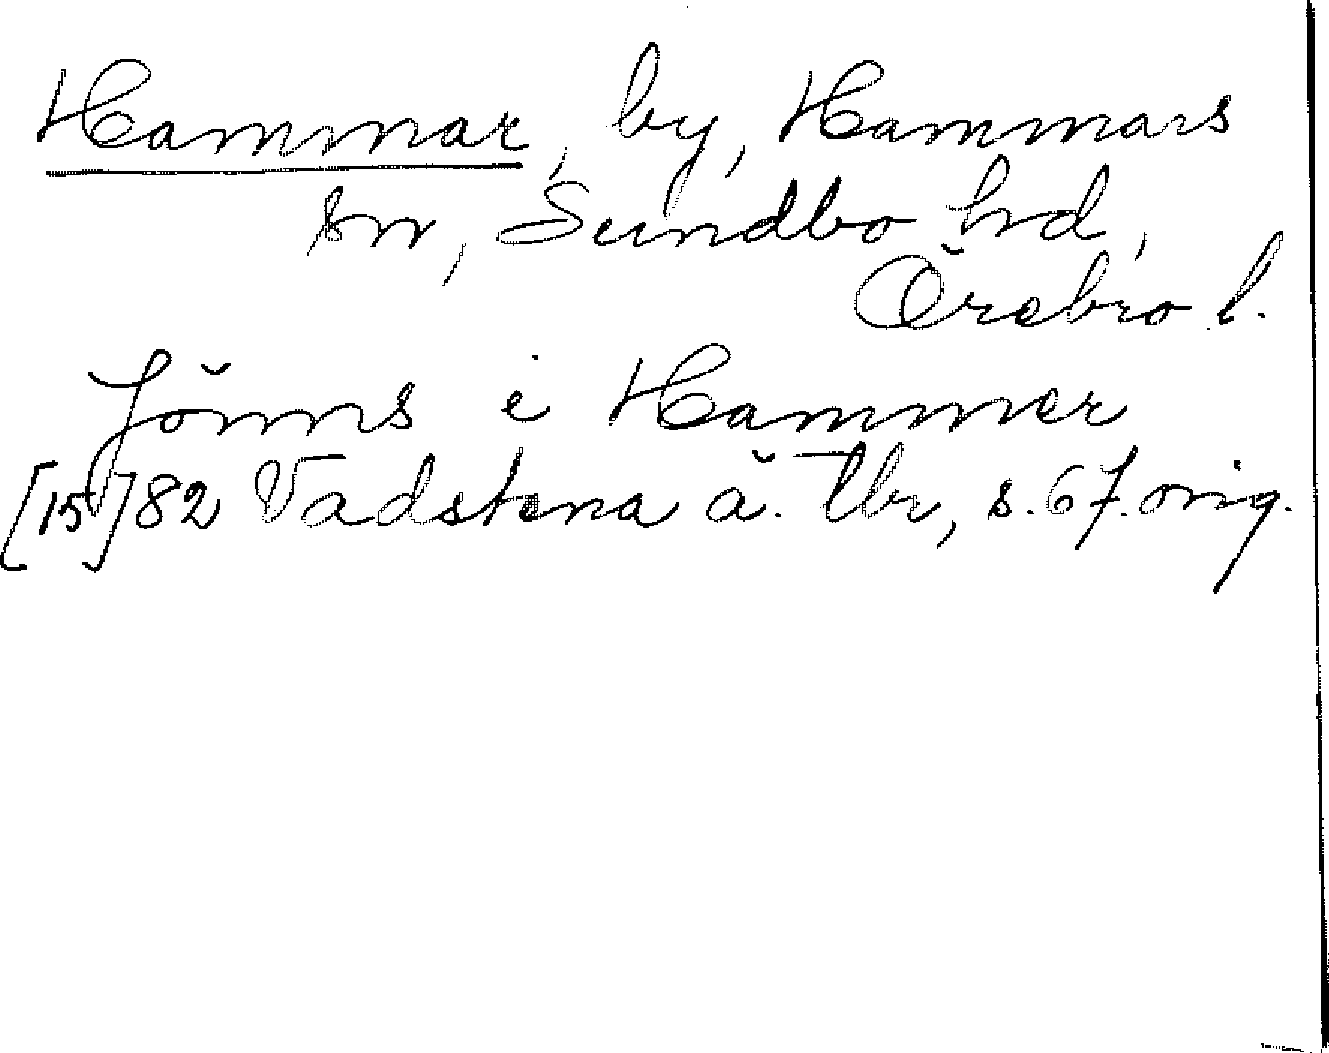 Hammar, by, Hammars
sn, Sundbo hd,
Örebro l.
Jönns i Hammer
[15]82 Vadstena ä. Tbr, s. 67. orig.